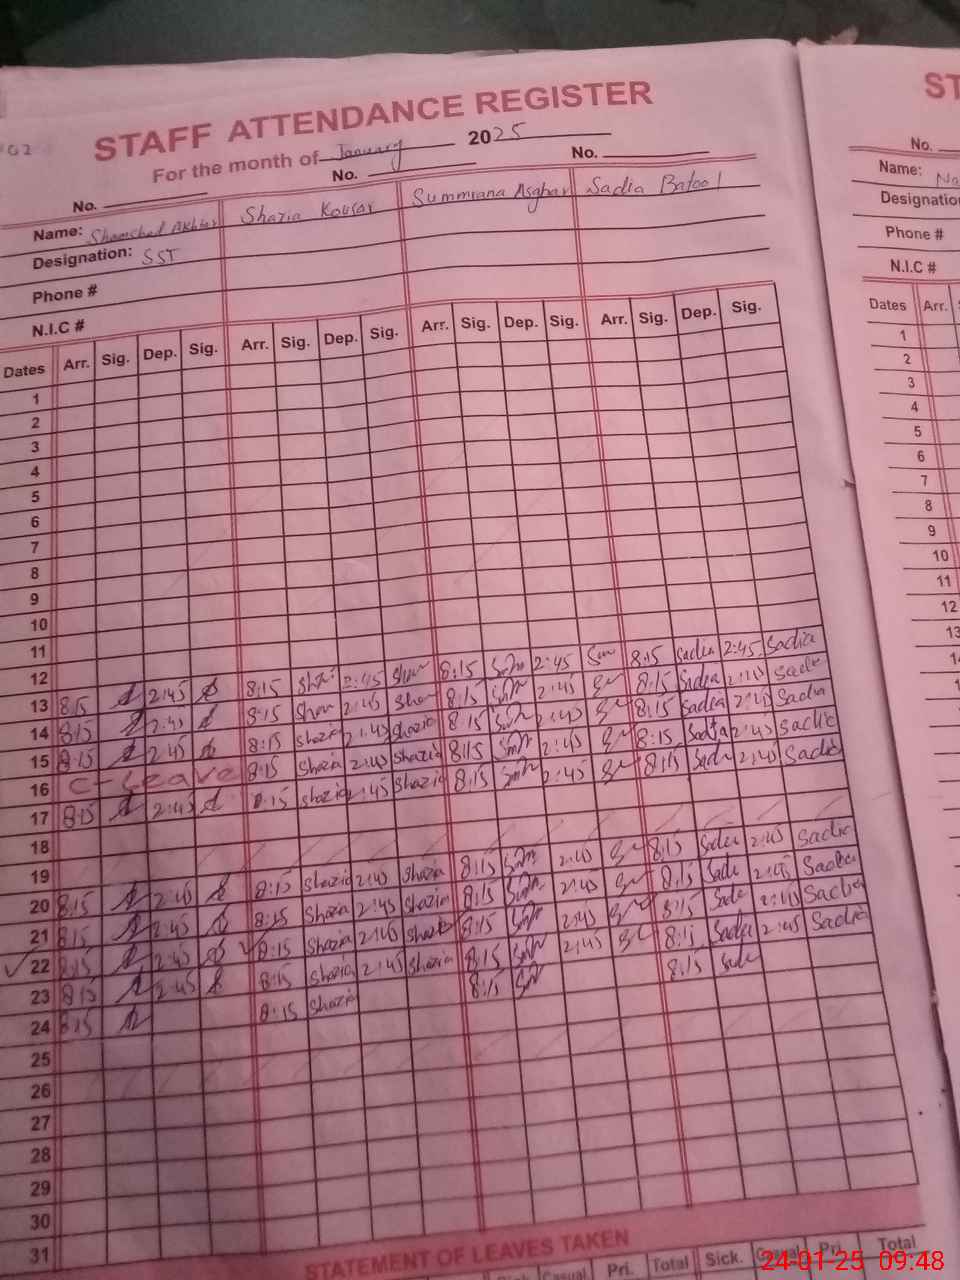 STAFF ATTENDANCE REGISTER
For the month of January 2025
No. No. No.
Name: Shamshad Akhtar Shazia Kousar Summrana Asghar Sadia Batool
Designation: SST
Phone #
N.I.C #
Dates Arr. Sig. Dep. Sig. Arr. Sig. Dep. Sig. Arr. Sig. Dep. Sig. Arr. Sig. Dep. Sig.
1
2
3
4
5
6
7
8
9
10
11
12
13 8:15 2:45 8:15 2:45 8:15 2:45 8:15 Sadia 2:45 Sadia
14 8:15 2:45 8:15 2:45 8:15 2:45 8:15 Sadia 2:45 Sadia
15 8:15 2:45 8:15 Shazia 2:45 Shazia 8:15 2:45 8:15 Sadia 2:45 Sadia
16 C-Leave 8:15 Shazia 2:45 Shazia 8:15 2:45 8:15 Sadia 2:45 Sadia
17 8:15 2:45 8:15 Shazia 2:45 Shazia 8:15 2:45 8:15 2:45 Sadia
18
19
20 8:15 2:45 8:15 Shazia 2:45 Shazia 8:15 2:45 8:15 Sadia 2:45 Sadia
21 8:15 2:45 8:15 Shazia 2:45 Shazia 8:15 2:45 8:15 2:45 Sadia
22 8:15 2:45 8:15 Shazia 2:45 8:15 2:45 8:15 2:45 Sadia
23 8:15 2:45 8:15 Shazia 2:45 Shazia 8:15 2:45 8:15 Sadia 2:45 Sadia
24 8:15 8:15 Shazia 8:15 8:15
25
26
27
28
29
30
31
STATEMENT OF LEAVES TAKEN
Casual Pri. Total Sick. Casual Pri. Total
ST
No.
Name:
Designatio
Phone #
N.I.C #
Dates Arr.
1
2
3
4
5
6
7
8
9
10
11
12
13
24-01-25 09:48